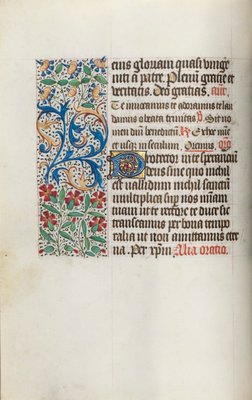 eius gloriam quasi unige
niti a patre. Plenum gratie et
veritatis. Deo gratias. ant.
Te invocamus te adoramus te lau
damus o beata trinitas p̄ Sit no
men dūi benedictū R Ex hoc nunc
et usq; in seculum. Oremus. oro
Protector in te sperantiū
deus sine quo nichil
est validum nichil sanctū
multiplica sup̄ nos mīam
tuam ut te rectore te duce sic
transeamus per bona tempo
ralia ut non amittamus eter
na. Per xp̄m Alia oratio.